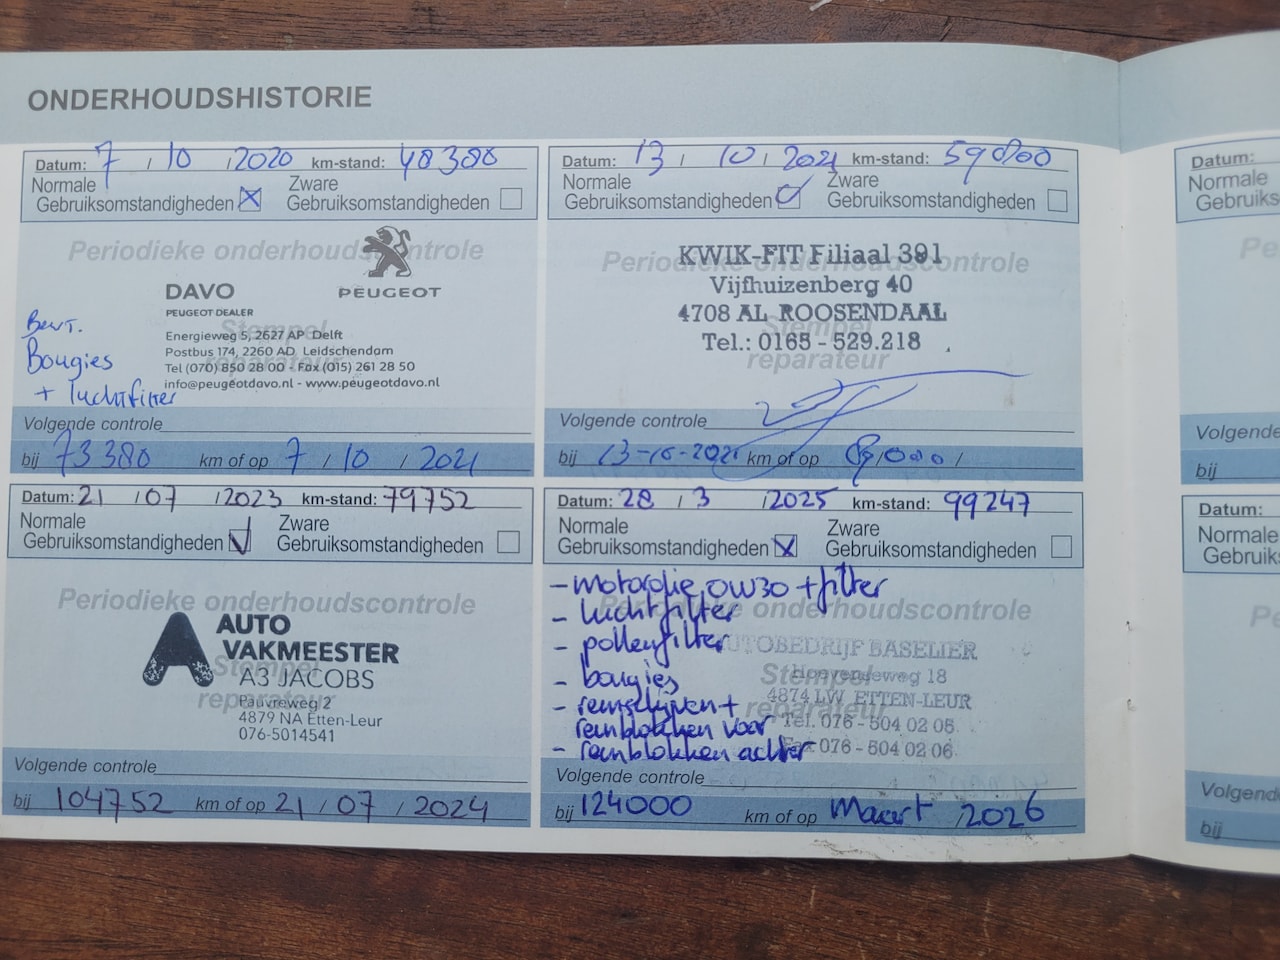 ONDERHOUDSHISTORIE
Datum: 7 / 10 / 2020 km-stand: 48380
Normale Gebruiksomstandigheden
Zware Gebruiksomstandigheden
Periodieke onderhoudscontrole
DAVO
PEUGEOT DEALER
PEUGEOT
Energieweg 5, 2627 AP Delft
Postbus 174, 2260 AD Leidschendam
Tel (070) 850 28 00 - Fax (015) 261 28 50
info@peugeotdavo.nl - www.peugeotdavo.nl
Stempel
reparateur
Beurt.
Bougies
+ luchtfilter
Volgende controle
bij 73380 km of op 7 / 10 / 2021
Datum: 13 / 10 / 2021 km-stand:
Normale Gebruiksomstandigheden
Zware Gebruiksomstandigheden
Periodieke onderhoudscontrole
KWIK-FIT Filiaal 391
Vijfhuizenberg 40
4708 AL ROOSENDAAL
Stempel
Tel.: 0165 - 529.218
reparateur
Volgende controle
bij km of op
Datum: 21 / 07 / 2023 km-stand: 79752
Normale Gebruiksomstandigheden
Zware Gebruiksomstandigheden
Periodieke onderhoudscontrole
AUTO
VAKMEESTER
A3 JACOBS
Stempel
reparateur
Pauvreweg 2
4879 NA Etten-Leur
076-5014541
Volgende controle
bij 104752 km of op 21 / 07 / 2024
Datum: 28 / 3 / 2025 km-stand: 99247
Normale Gebruiksomstandigheden
Zware Gebruiksomstandigheden
Periodieke onderhoudscontrole
- motorolie 0W30 + filter
- luchtfilter
- pollenfilter
- bougies
- remschijven +
remblokken voor
- remblokken achter
AUTOBEDRIJF BASELIER
Hoevenseweg 18
Stempel
4874 LW ETTEN-LEUR
reparateur
Tel. 076 - 504 02 05
Fax 076 - 504 02 06
Volgende controle
bij 124000 km of op Maart / 2026
Datum:
Normale
Gebruiks
Pe
Volgende
bij
Datum:
Normale
Gebruiks
Pe
Volgende
bij